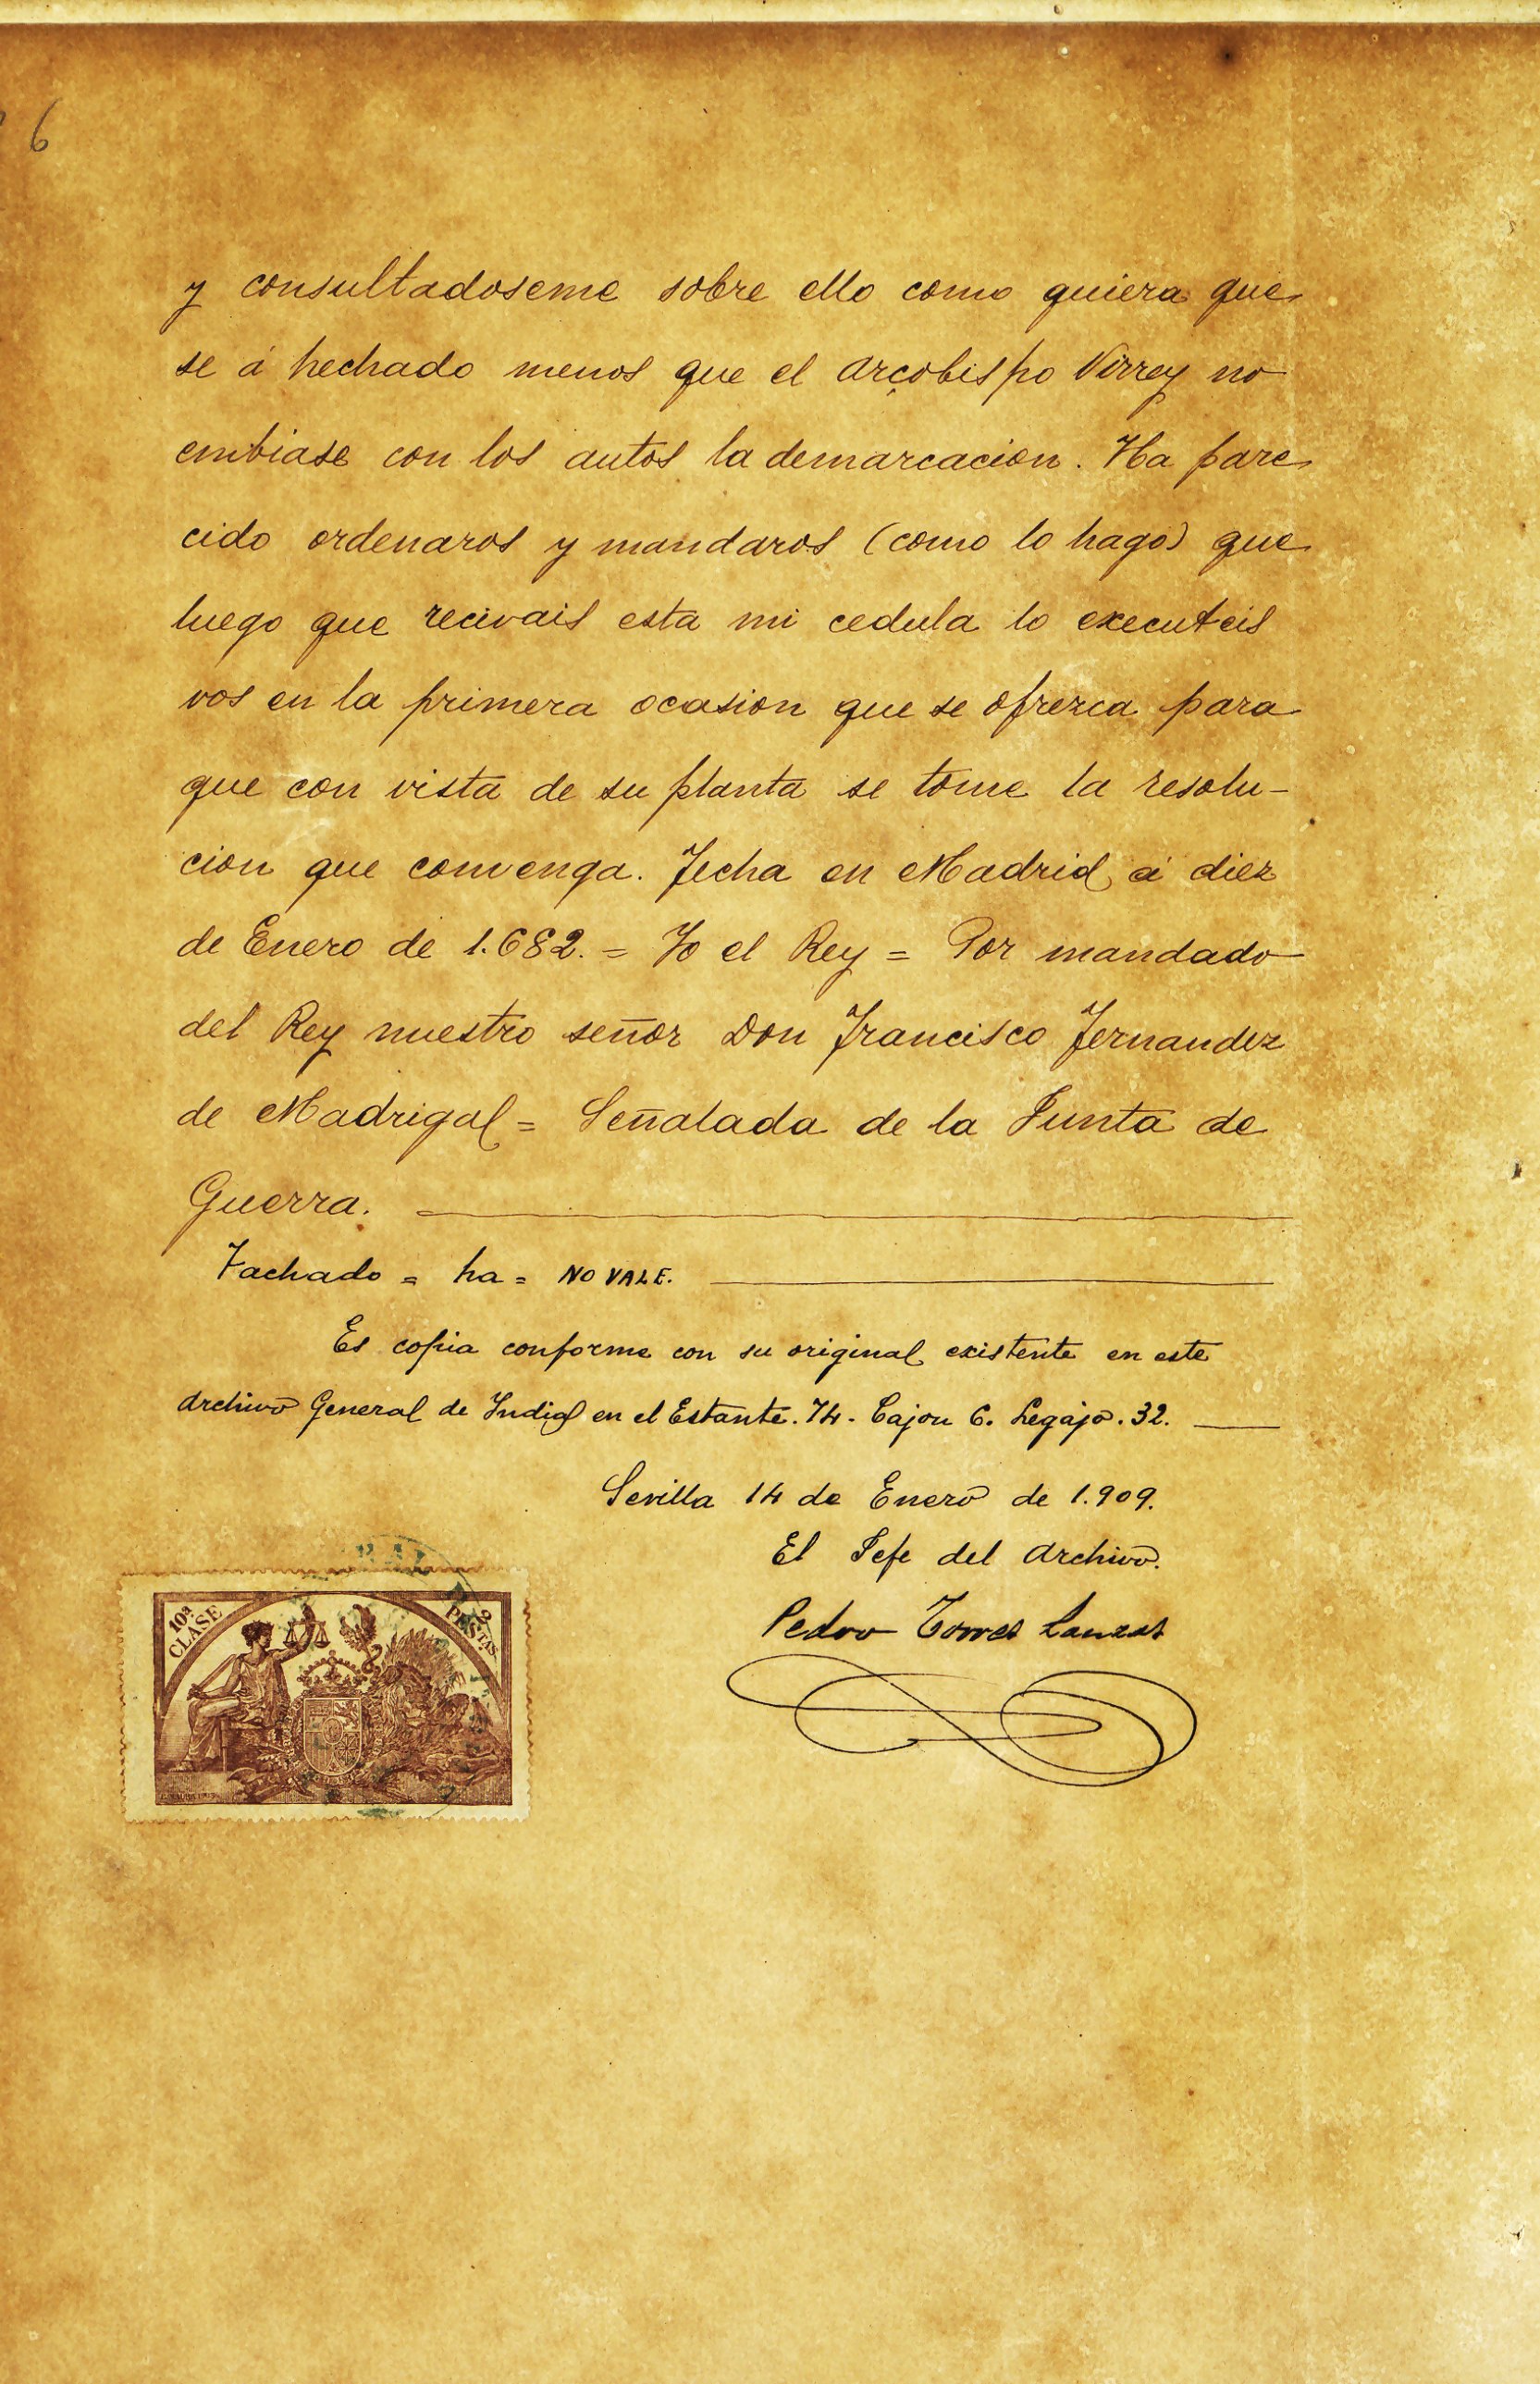 6
y consultadoseme sobre ello como quiera que
se á hechado menos que el arçobispo Virrey no
embiase con los autos la demarcacion. Ha pare
cido ordenaros y mandaros (como lo hago) que
luego que recivais esta mi cedula lo executeis
vos en la primera ocasion que se ofrezca para
que con vista de su planta se tome la resolu-
cion que convenga. Fecha en Madrid á diez
de Enero de 1.682. = Yo el Rey = Por mandado
del Rey nuestro señor Don Francisco Fernandez
de Madrigal = Señalada de la Junta de
Guerra.
Tachado = ha = NO VALE.
Es copia conforme con su original existente en este
Archivo General de Indias en el Estante. 74. Cajon 6. Legajo. 32.
Sevilla 14 de Enero de 1.909.
El Jefe del Archivo.
Pedro Torres Lanzas
10ª CLASE
PESETAS